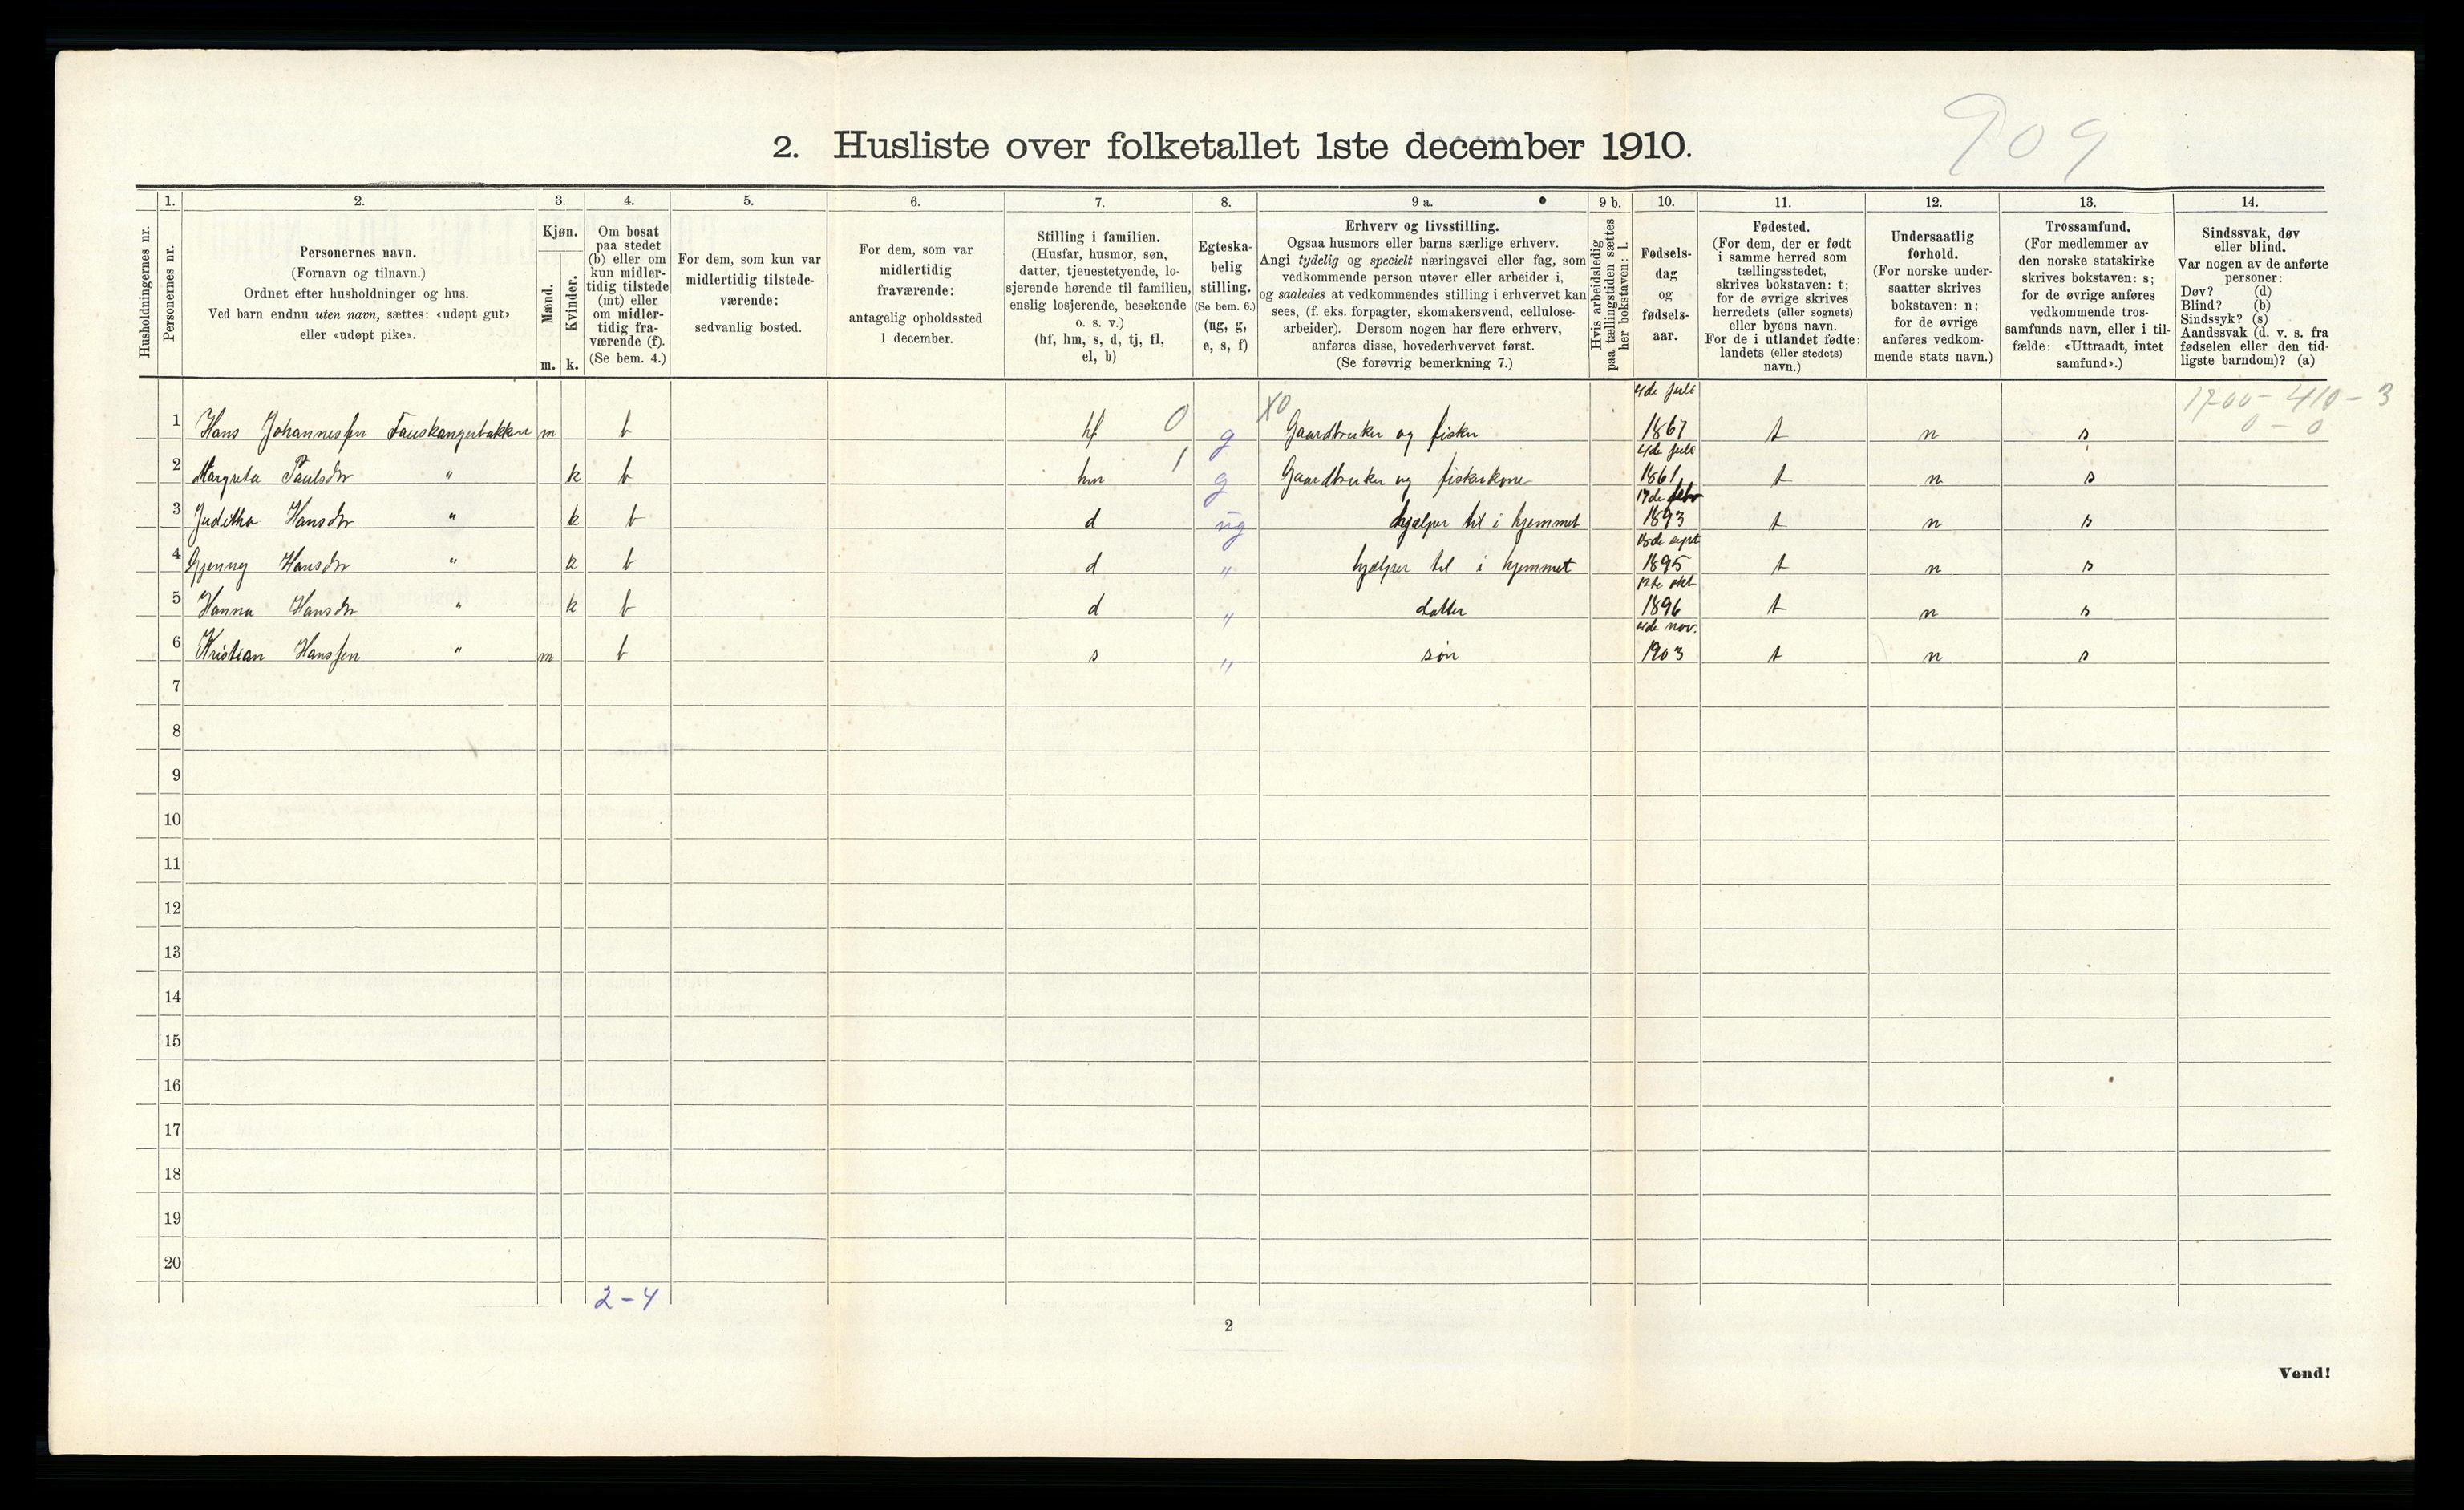 909
2. Husliste over folketallet 1ste december 1910.
Husholdningernes nr.
1. Personernes nr.
2. Personernes navn. (Fornavn og tilnavn.) Ordnet efter husholdninger og hus. Ved barn endnu uten navn, sættes: «udøpt gut» eller «udøpt pike».
3. Kjøn. Mænd. m. Kvinder. k.
4. Om bosat paa stedet (b) eller om kun midlertidig tilstede (mt) eller om midlertidig fraværende (f). (Se bem. 4.)
5. For dem, som kun var midlertidig tilstedeværende: sedvanlig bosted.
6. For dem, som var midlertidig fraværende: antagelig opholdssted 1 december.
7. Stilling i familien. (Husfar, husmor, søn, datter, tjenestetyende, losjerende hørende til familien, enslig losjerende, besøkende o. s. v.) (hf, hm, s, d, tj, fl, el, b)
8. Egteskabelig stilling. (Se bem. 6.) (ug, g, e, s, f)
9 a. Erhverv og livsstilling. Ogsaa husmors eller barns særlige erhverv. Angi tydelig og specielt næringsvei eller fag, som vedkommende person utøver eller arbeider i, og saaledes at vedkommendes stilling i erhvervet kan sees, (f. eks. forpagter, skomakersvend, cellulosearbeider). Dersom nogen har flere erhverv, anføres disse, hovederhvervet først. (Se forøvrig bemerkning 7.)
9 b. Hvis arbeidsledig paa tællingstiden sættes her bokstaven: l.
10. Fødselsdag og fødselsaar.
11. Fødested. (For dem, der er født i samme herred som tællingsstedet, skrives bokstaven: t; for de øvrige skrives herredets (eller sognets) eller byens navn. For de i utlandet fødte: landets (eller stedets) navn.)
12. Undersaatlig forhold. (For norske undersaatter skrives bokstaven: n; for de øvrige anføres vedkommende stats navn.)
13. Trossamfund. (For medlemmer av den norske statskirke skrives bokstaven: s; for de øvrige anføres vedkommende trossamfunds navn, eller i tilfælde: «Uttraadt, intet samfund».)
14. Sindssvak, døv eller blind. Var nogen av de anførte personer: Døv? (d) Blind? (b) Sindssyk? (s) Aandssvak (d. v. s. fra fødselen eller den tidligste barndom)? (a)
1 Hans Johannessen Fauskangerbakken m b hf 0 g X0 Gaardbruker og fisker 4de juli 1867 t n s 1700 - 410 - 3 0 - 0
2 Margreta Paulsdtr " k b hm 1 g Gaardbruker og fiskerkone 4de juli 1861 t n s
3 Juditha Hansdtr " k b d ug hjælper til i hjemmet 17de febr 1893 t n s
4 Gjenny Hansdtr " k b d " hjælper til i hjemmet 15de sept 1895 t n s
5 Hanna Hansdtr " k b d " datter 12te okt 1896 t n s
6 Kristian Hanssen " m b s " søn 4de nov. 1903 t n s
7
8
9
10
11
12
13
14
15
16
17
18
19
20
2-4
2
Vend!